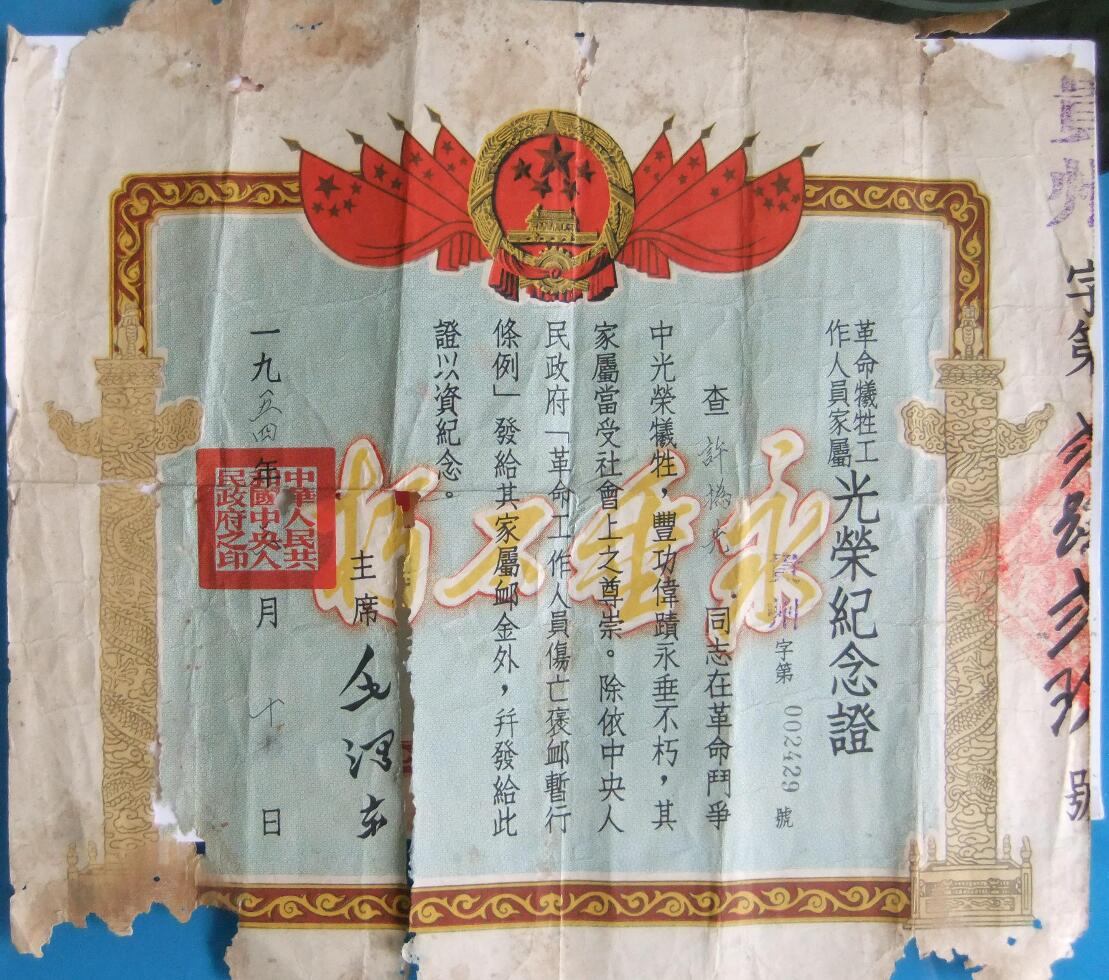 革命犧牲工
作人員家屬
光榮紀念證
字第 002429 號
查 許 同志在革命鬥爭
中光榮犧牲，豐功偉蹟永垂不朽，其
家屬當受社會上之尊崇。除依中央人
民政府「革命工作人員傷亡褒邺暫行
條例」發給其家屬邺金外，幷發給此
證以資紀念。
主席 毛澤東
一九五四年 月 十 日
中華人民共
和國中央人
民政府之印
永垂不朽
字第
號